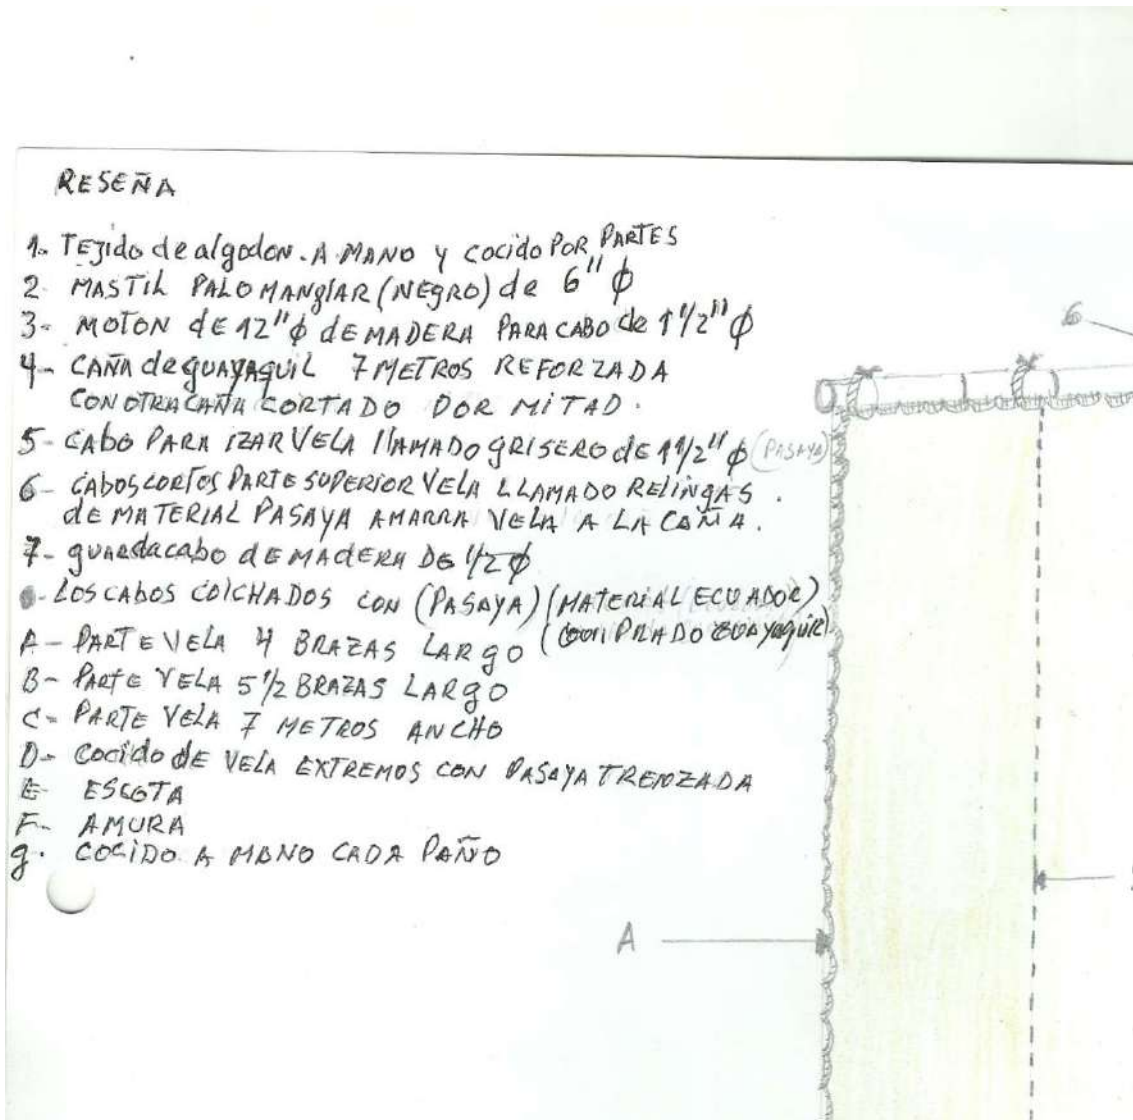 RESEÑA
1- TEJido de algodon. A MANO y cocido POR PARTES
2- MASTIL PALO MANGlAR (NEGRO) de 6" ϕ
3- MOTON dE 12" ϕ dE MADERA PARA CABO de 1 1/2" ϕ
4- CAÑA de guayaquil 7 METROS REFORZADA
CON OTRA CAÑA CORTADO POR MITAD.
5- CABO PARA IZAR VELA llAMADO gRISERO dE 1 1/2" ϕ (PASAYA)
6- CABOS CORTOS PARTE SUPERIOR VELA LLAMADO RELINGAS.
dE MATERIAL PASAYA AMARRA VELA A LA CAÑA.
7- guardacabo dE MADERA DE 1/2 ϕ
- LOS CABOS COlCHADOS CON (PASAYA) (MATERIAL ECUADOR)
(COMPRADO GUAYAquil)
A- PARTE VELA 4 BRAZAS LARgO
B- PARTE VELA 5 1/2 BRAZAS LARgO
C- PARTE VELA 7 METROS ANCHO
D- COCIdO dE VELA EXTREMOS CON PASAYA TRENZADA
E- ESCOTA
F- AMURA
g. COCIDO A MANO CADA PAÑO
6
A